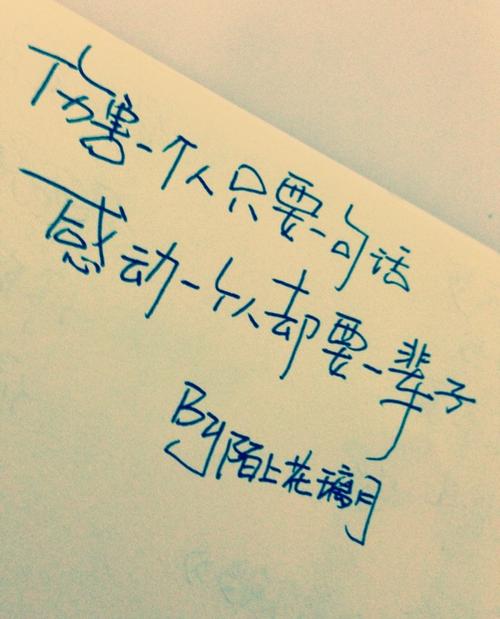 伤害一个人只要一句话
感动一个人却要一辈子
By陌上花璃月